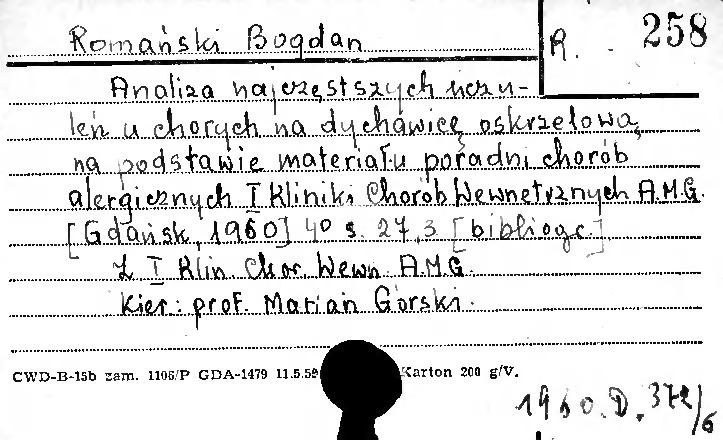 Romański Bogdan
R. 258
Analiza najczęstszych uczu-
leń u chorych na dychawicę oskrzelową
na podstawie materiału poradni chorób
alergicznych I Kliniki Chorób Wewnętrznych A.M.G.
[Gdańsk, 1960] 40 s. 27,3 [bibliogr.]
Z I Klin. Chor. Wewn. A.M.G.
Kier: prof. Marian Górski.
CWD-B-15b zam. 1106/P GDA-1479 11.5.59 Karton 200 g/V.
1960.D.372/6